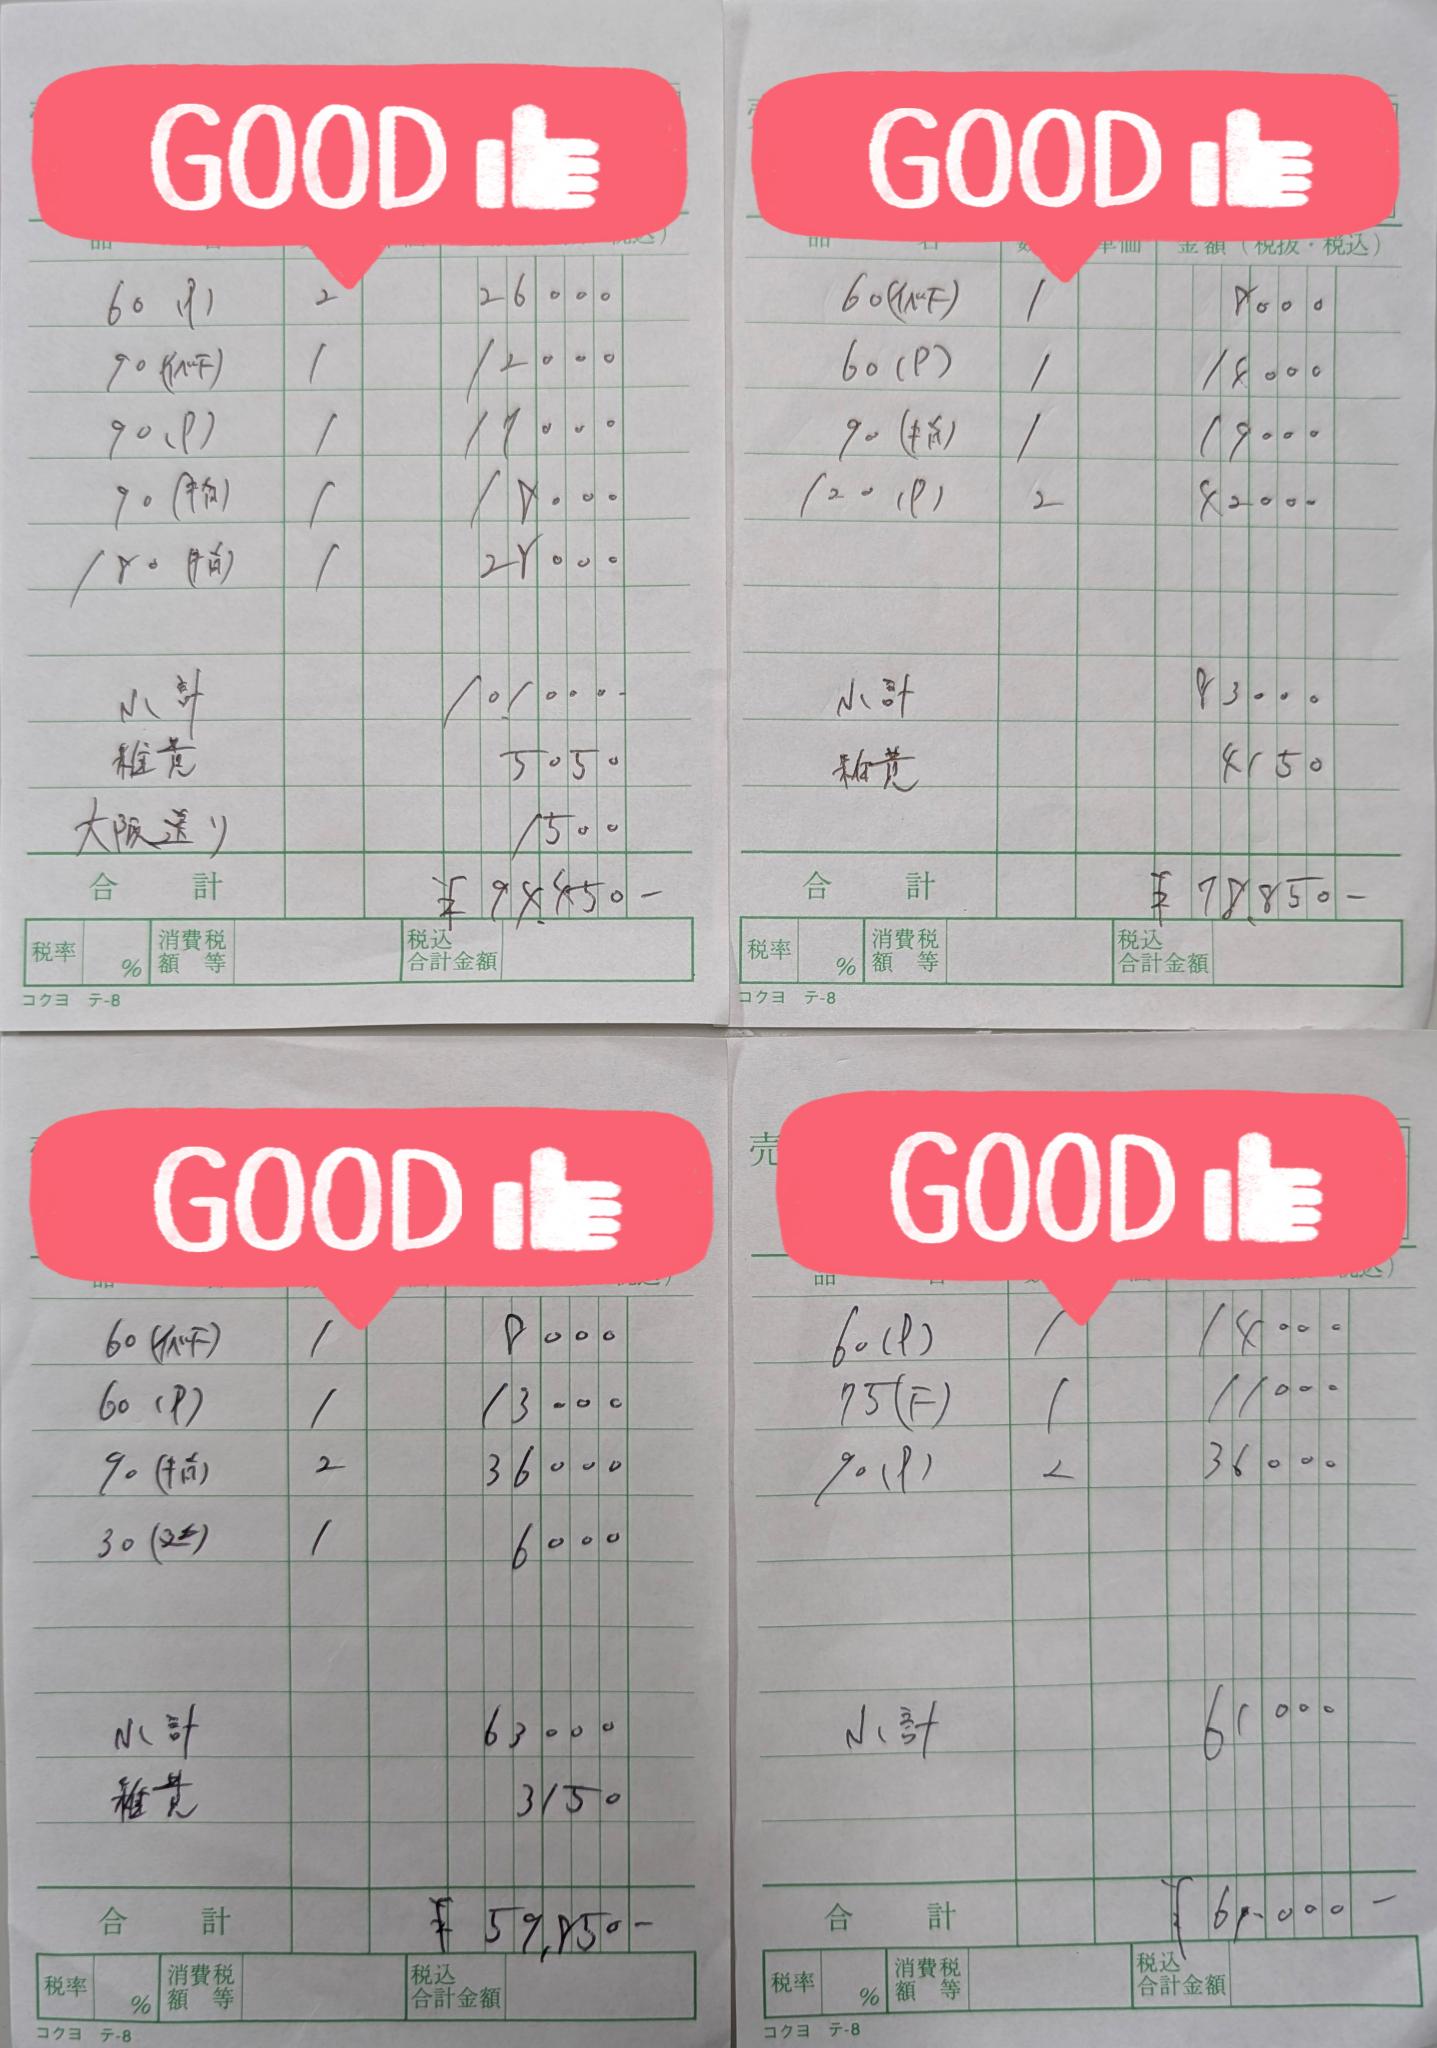 GOOD
60 (P) 2 26000
90 (イベF) 1 12000
90 (P) 1 17000
90 (本指) 1 18000
180 (本指) 1 28000
小計 101000-
雑費 5050
大阪送り 1500
合計 ¥94,450-
税率 % 消費税額等 税込合計金額
コクヨ テ-8
GOOD
品 名 単価 金額(税抜・税込)
60(イベF) 1 8000
60(P) 1 14000
90 (本指) 1 19000
120 (P) 2 42000
小計 83000
雑費 4150
合計 ¥78,850-
税率 % 消費税額等 税込合計金額
コクヨ テ-8
GOOD
60 (イベF) 1 8000
60 (P) 1 13000
90 (本指) 2 36000
30 (延) 1 6000
小計 63000
雑費 3150
合計 ¥59,850-
税率 % 消費税額等 税込合計金額
コクヨ テ-8
売
GOOD
60(P) 1 14000
75(F) 1 11000
90(P) 2 36000
小計 61000
合計 ¥61,000-
税率 % 消費税額等 税込合計金額
コクヨ テ-8